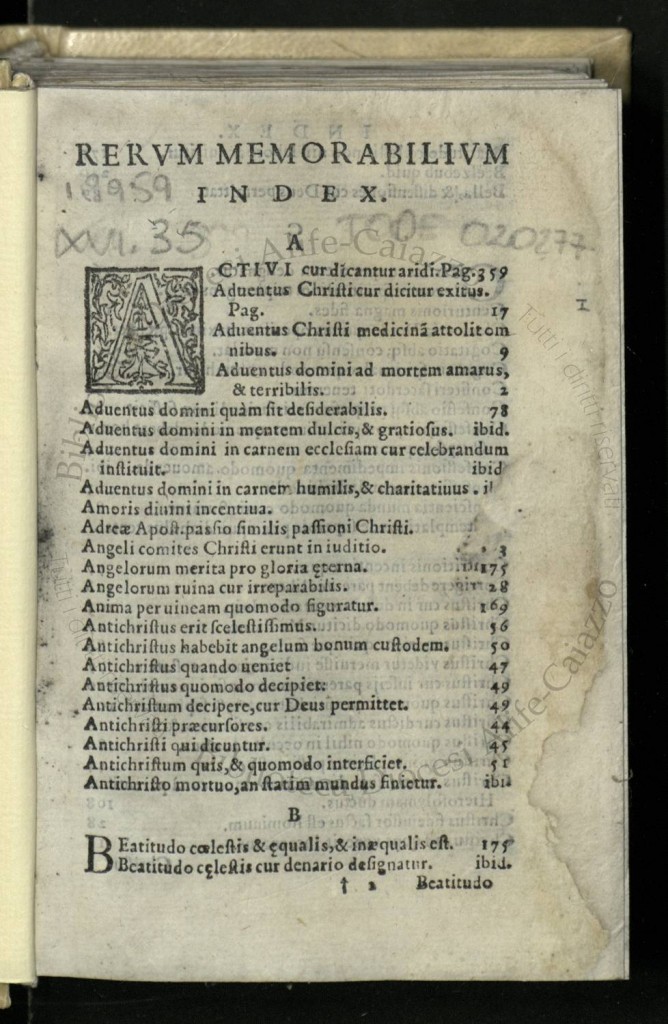 RERVM MEMORABILIVM
INDEX.
18959
XVI. 35
020277
A
ACTIVI cur dicantur aridi. Pag. 359
Aduentus Christi cur dicitur exitus.
Pag. 17
Aduentus Christi medicinā attolit om
nibus. 9
Aduentus domini ad mortem amarus,
& terribilis. 2
Aduentus domini quàm sit desiderabilis. 78
Aduentus domini in mentem dulcis, & gratiosus. ibid.
Aduentus domini in carnem ecclesiam cur celebrandum
instituit. ibid
Aduentus domini in carnem humilis, & charitatiuus.
Amoris diuini incentiua.
Adreæ Apost. passio similis passioni Christi.
Angeli comites Christi erunt in iuditio. 3
Angelorum merita pro gloria ęterna. 175
Angelorum ruina cur irreparabilis. 28
Anima per uineam quomodo figuratur. 169
Antichristus erit scelestissimus. 56
Antichristus habebit angelum bonum custodem. 50
Antichristus quando ueniet 47
Antichristus quomodo decipiet: 49
Antichristum decipere, cur Deus permittet. 49
Antichristi præcursores. 44
Antichristi qui dicuntur. 45
Antichristum quis, & quomodo interficiet. 51
Antichristo mortuo, an statim mundus finietur. ibid
B
BEatitudo cœlestis & ęqualis, & inæqualis est. 175
Beatitudo cęlestis cur denario designatur. ibid.
† 2 Beatitudo